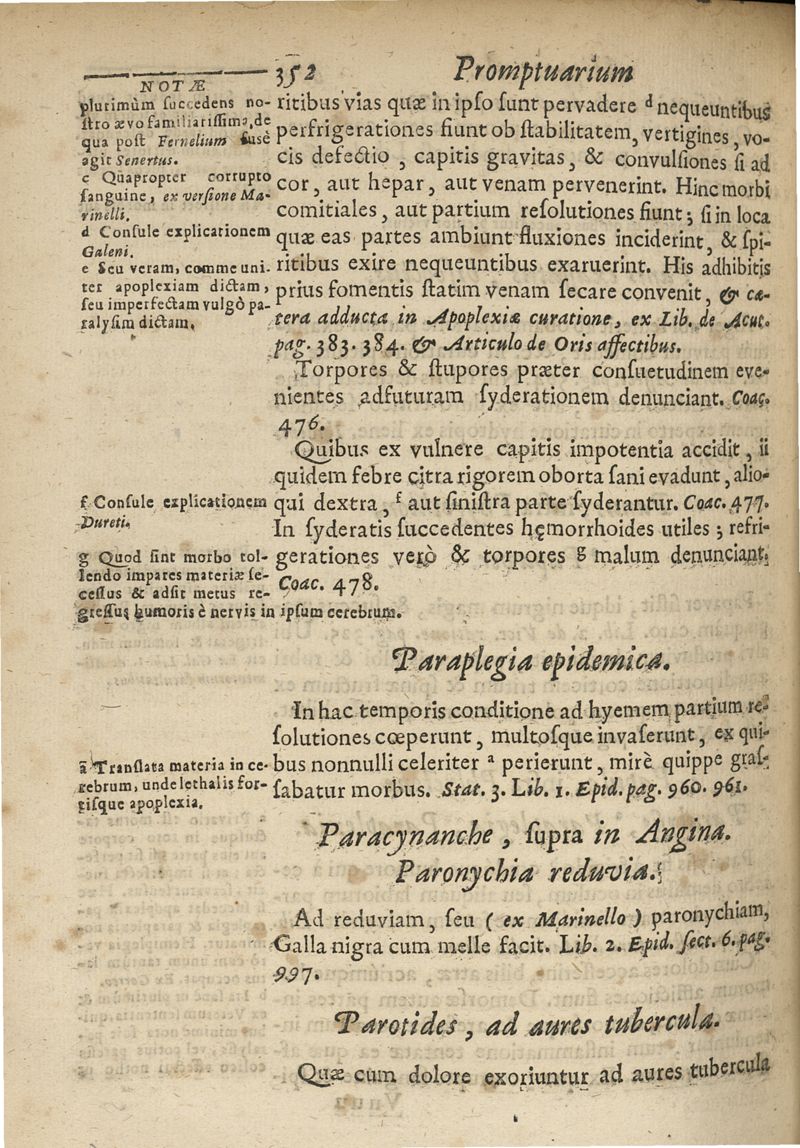 NOTÆ
plurimùm succedens no-
stro ævo familiarissima, de
qua post Fernelium fusè
agit Senertus.
c Quapropter corrupto
sanguine, ex versione Ma-
rinelli.
d Consule explicationem
Galeni.
e Seu veram, comme uni-
ter apoplexiam dictam,
seu imperfectam vulgò pa-
ralysim dictam.
f Consule explicationem
Dureti.
g Quod sint morbo tol-
lendo impares materiæ se-
cessus & adsit metus re-
gressus humoris è nervis in ipsum cerebrum.
a Translata materia in ce-
rebrum, unde lethalis for-
tisque apoplexia.
352 Promptuarium
ritibus vias quæ in ipso sunt pervadere d nequeuntibus
perfrigerationes fiunt ob stabilitatem, vertigines, vo-
cis defectio, capitis gravitas, & convulsiones si ad
cor, aut hepar, aut venam pervenerint. Hinc morbi
comitiales, aut partium resolutiones fiunt; si in loca
quæ eas partes ambiunt fluxiones inciderint, & spi-
ritibus exire nequeuntibus exaruerint. His adhibitis
prius fomentis statim venam secare convenit, & cæ-
tera adducta in Apoplexiæ curatione, ex Lib. de Acut.
pag. 383. 384. & Articulo de Oris affectibus.
Torpores & stupores præter consuetudinem eve-
nientes adfuturam syderationem denunciant. Coaç.
476.
Quibus ex vulnere capitis impotentia accidit, ii
quidem febre citra rigorem oborta sani evadunt, alio-
qui dextra, f aut sinistra parte syderantur. Coac. 477.
In syderatis succedentes hęmorrhoides utiles; refri-
gerationes verò & torpores g malum denunciant.
Coac. 478.
Paraplegia epidemica.
In hac temporis conditione ad hyemem partium re-
solutiones cœperunt, multosque invaserunt, ex qui-
bus nonnulli celeriter a perierunt, mirè quippe gras-
sabatur morbus. Stat. 3. Lib. 1. Epid. pag. 960. 961.
Paracynanche, supra in Angina.
Paronychia reduvia.
Ad reduviam, seu ( ex Marinello ) paronychiam,
Galla nigra cum melle facit. Lib. 2. Epid. sect. 6. pag.
997.
Parotides, ad aures tubercula.
Quæ cum dolore exoriuntur ad aures tubercula